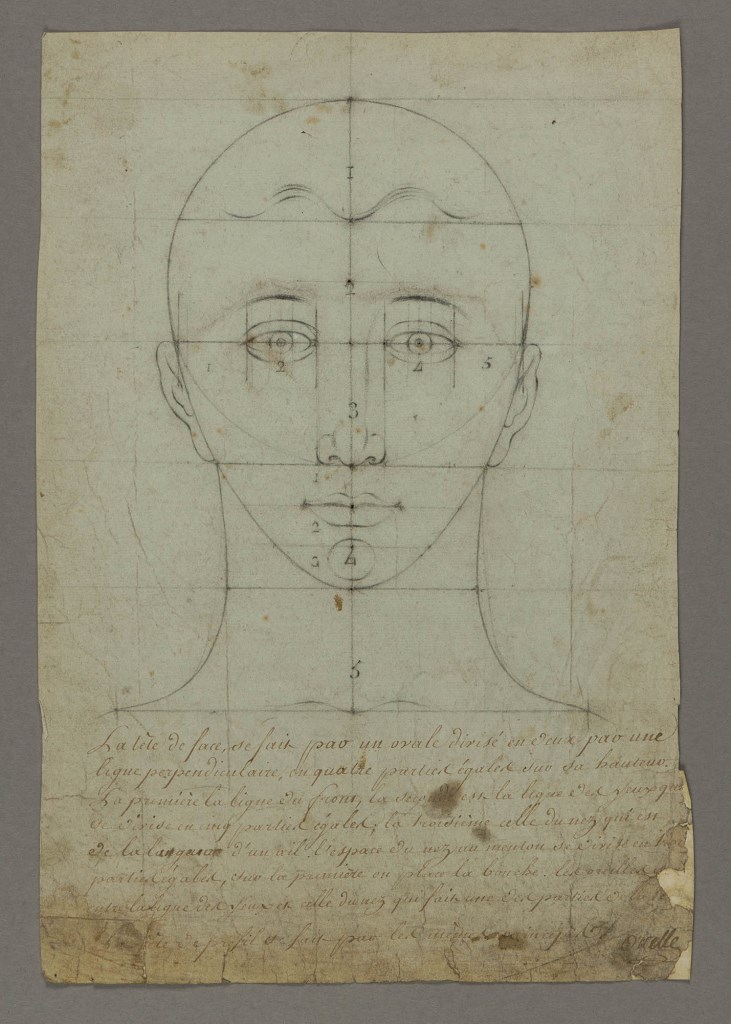 1
2
1 2 4 5
3
1
2
3 4
5
La tête de face, se fait par un ovale divisé en deux par une
ligne perpendiculaire, en quatre parties égales sur sa hauteur.
La première la ligne du front, la seconde est la ligne des yeux qui
se divise en cinq parties égales; la troisième celle du nez qui est
de la largeur d'un œil. l'espace du nez au menton se divise en
parties égales, sur la première on place la bouche. les oreilles
entre la ligne des yeux et celle du nez qui fait une des parties de la
de profil se fait par les mêmes